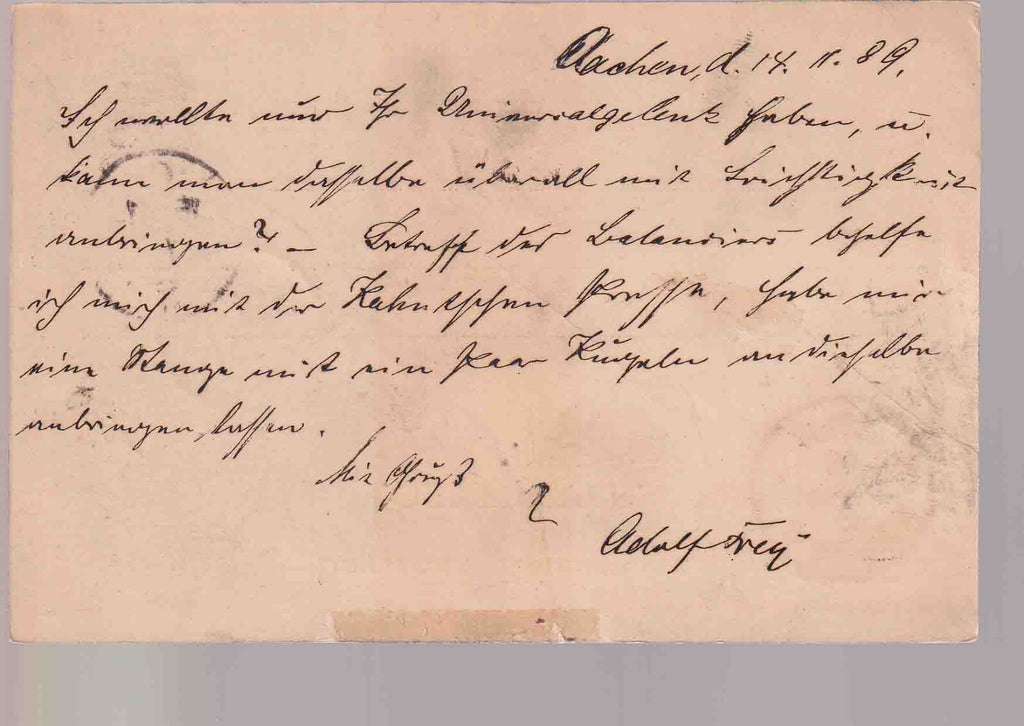 Aachen, d. 14. 11. 89.
Ich wollte nur Ihr Universalgelenk haben, u.
kann man dasselbe überall mit Leichtigkeit
anbringen? — Betreff des Balanciers behelfe
ich mich mit der Presse, habe mir
eine Stange mit ein Paar Kugeln an dieselbe
anbringen lassen.
Mit Gruß
Adolf Frey